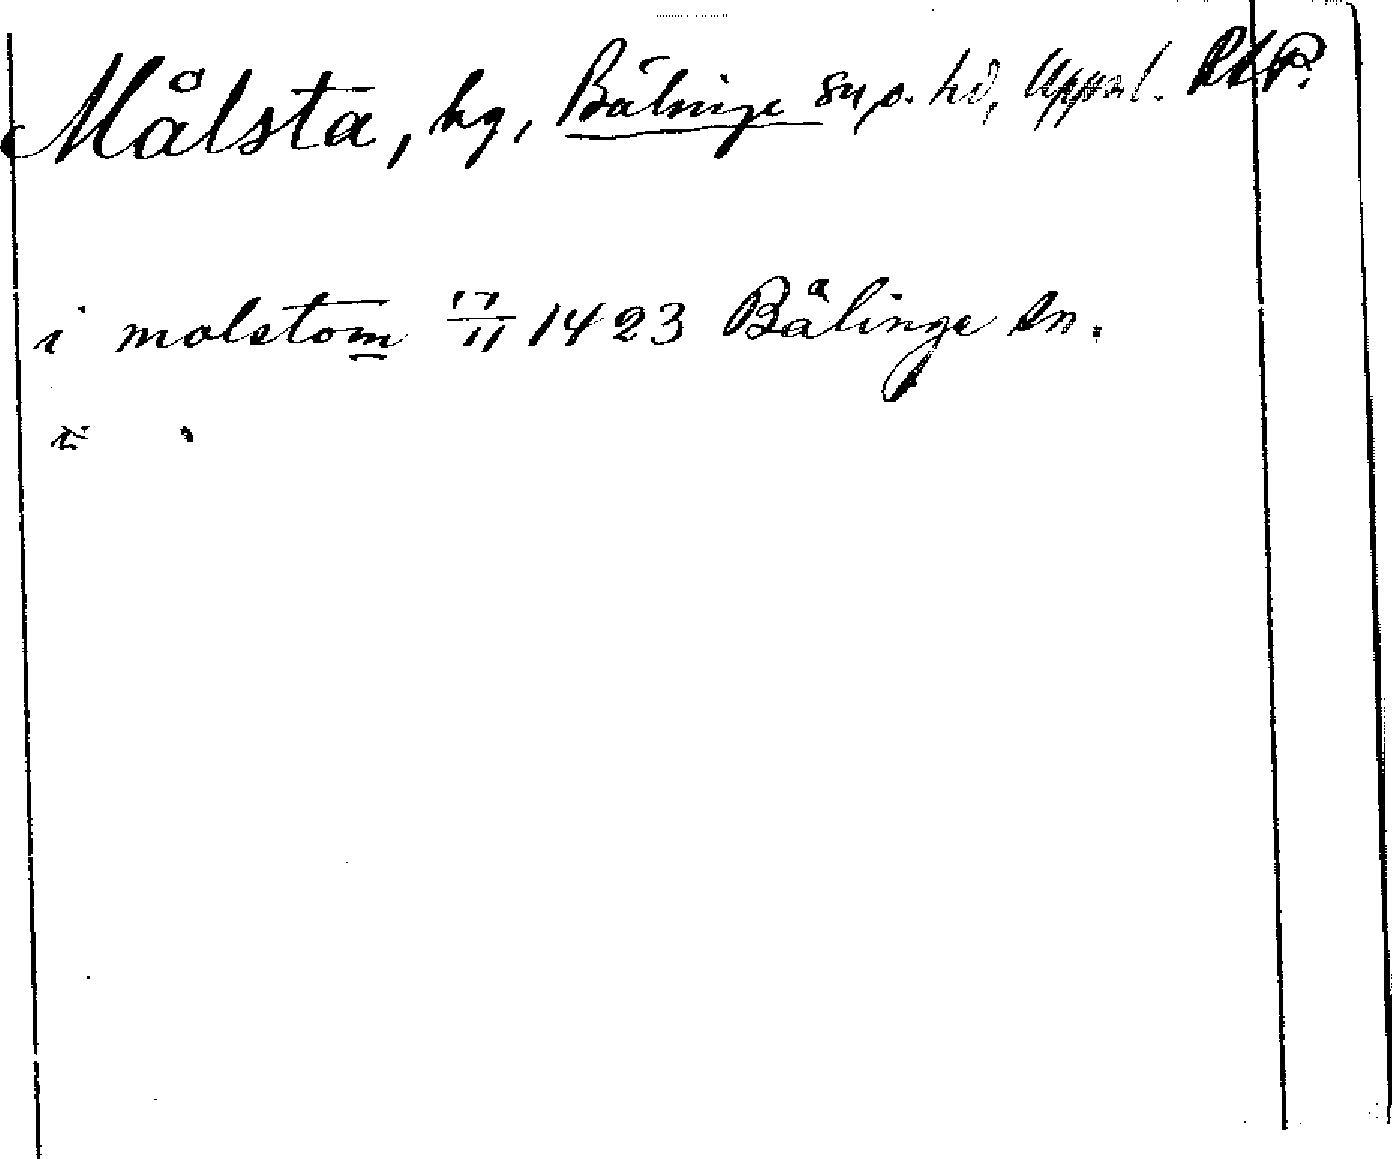 Målsta, hg, Bälinge sn o. hd, Uppsal. RAP.
i molstom 17/11 1423 Bålinge sn.